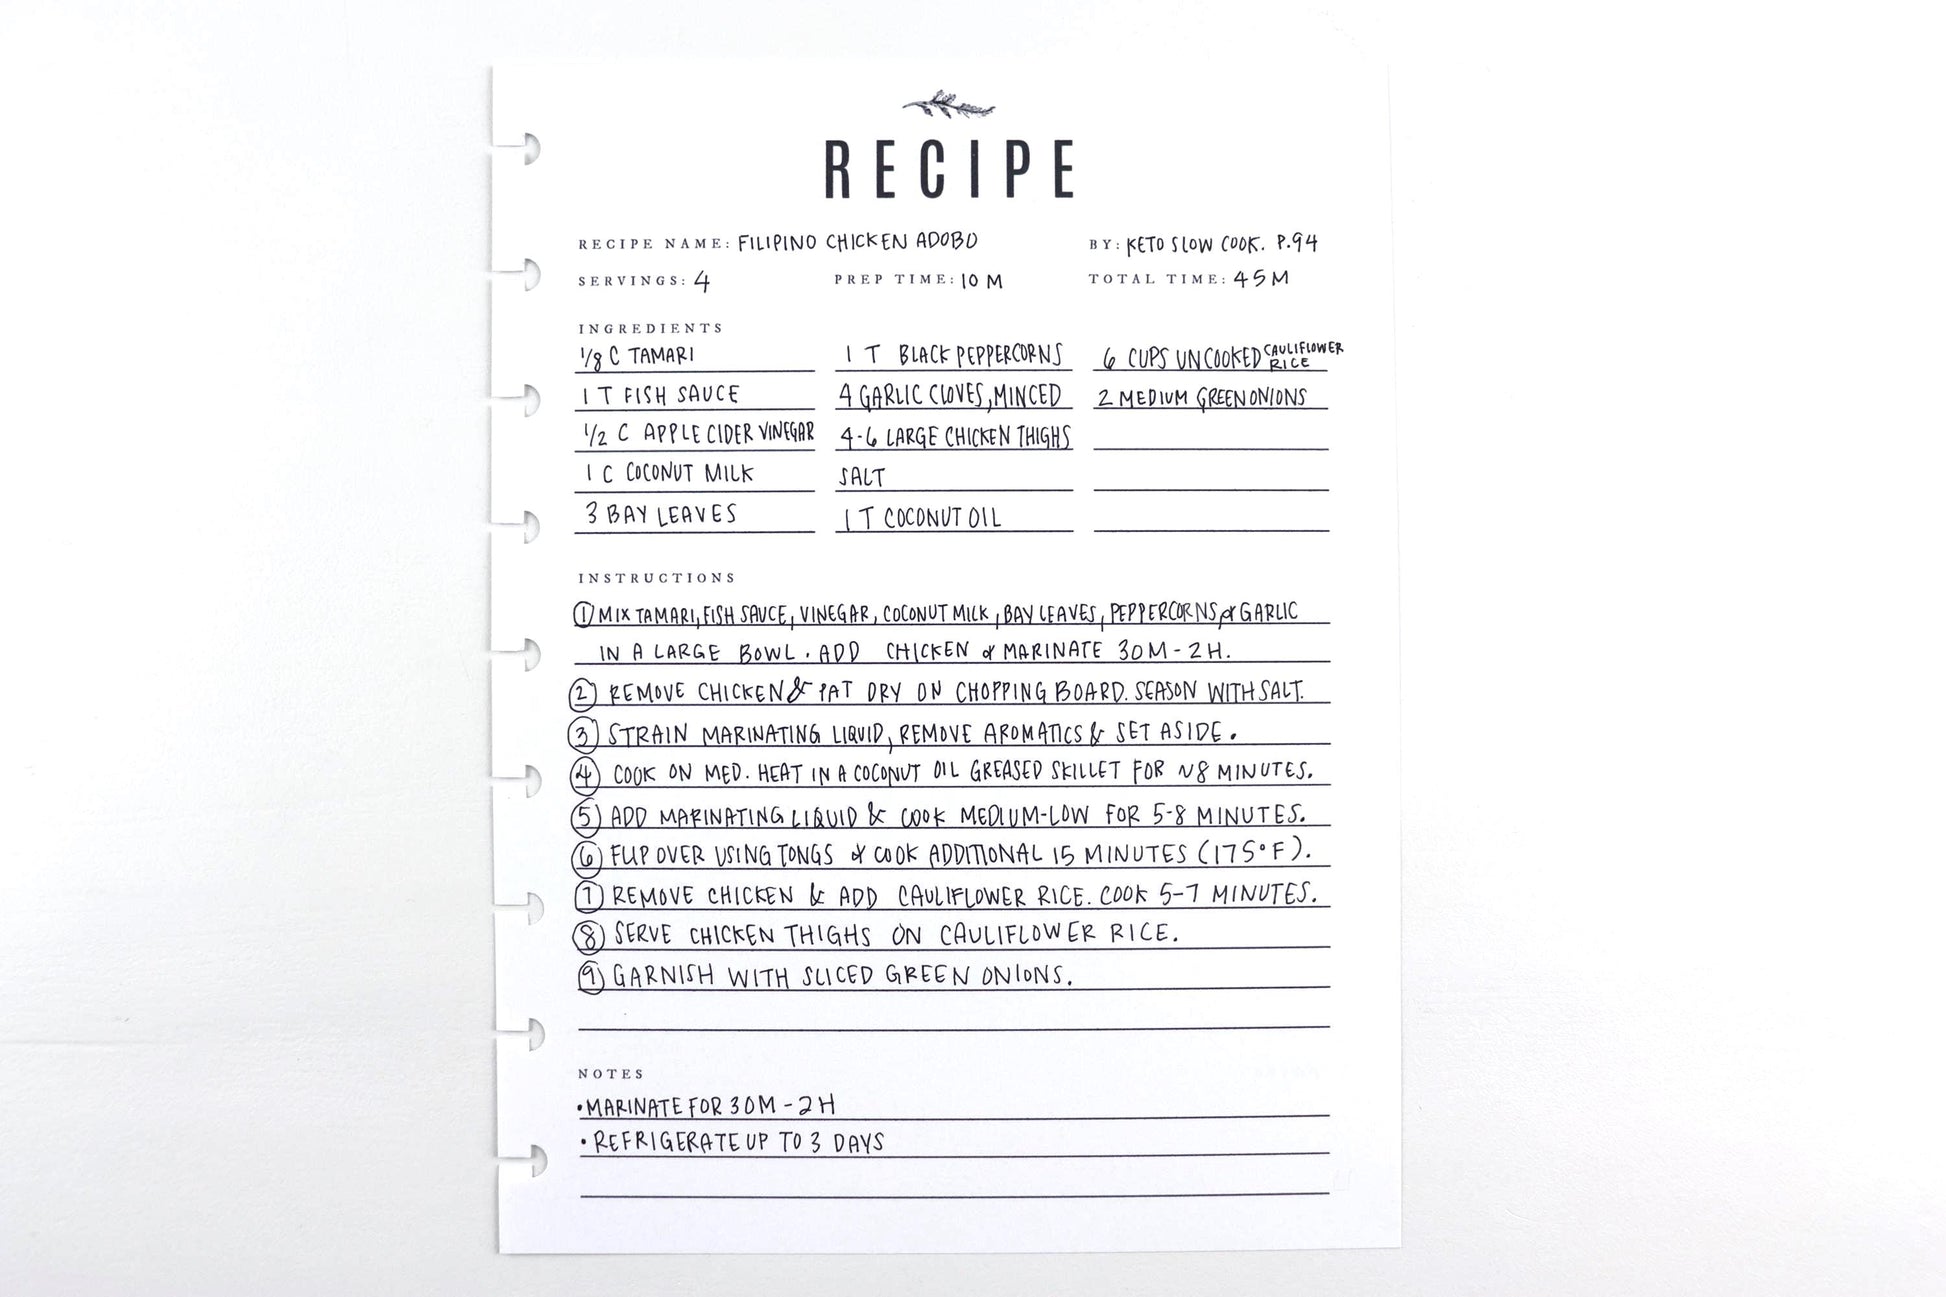 RECIPE
RECIPE NAME: FILIPINO CHICKEN ADOBO BY: KETO SLOW COOK. P.94
SERVINGS: 4 PREP TIME: 10 M TOTAL TIME: 45 M
INGREDIENTS
1/8 C TAMARI
1 T FISH SAUCE
1/2 C APPLE CIDER VINEGAR
1 C COCONUT MILK
3 BAY LEAVES
1 T BLACK PEPPERCORNS
4 GARLIC CLOVES, MINCED
4-6 LARGE CHICKEN THIGHS
SALT
1 T COCONUT OIL
6 CUPS UNCOOKED CAULIFLOWER RICE
2 MEDIUM GREEN ONIONS
INSTRUCTIONS
① MIX TAMARI, FISH SAUCE, VINEGAR, COCONUT MILK, BAY LEAVES, PEPPERCORNS, & GARLIC
IN A LARGE BOWL. ADD CHICKEN & MARINATE 30M-2H.
② REMOVE CHICKEN & PAT DRY ON CHOPPING BOARD. SEASON WITH SALT.
③ STRAIN MARINATING LIQUID, REMOVE AROMATICS & SET ASIDE.
④ COOK ON MED. HEAT IN A COCONUT OIL GREASED SKILLET FOR ~8 MINUTES.
⑤ ADD MARINATING LIQUID & COOK MEDIUM-LOW FOR 5-8 MINUTES.
⑥ FLIP OVER USING TONGS & COOK ADDITIONAL 15 MINUTES (175°F).
⑦ REMOVE CHICKEN & ADD CAULIFLOWER RICE. COOK 5-7 MINUTES.
⑧ SERVE CHICKEN THIGHS ON CAULIFLOWER RICE.
⑨ GARNISH WITH SLICED GREEN ONIONS.
NOTES
• MARINATE FOR 30M-2H
• REFRIGERATE UP TO 3 DAYS